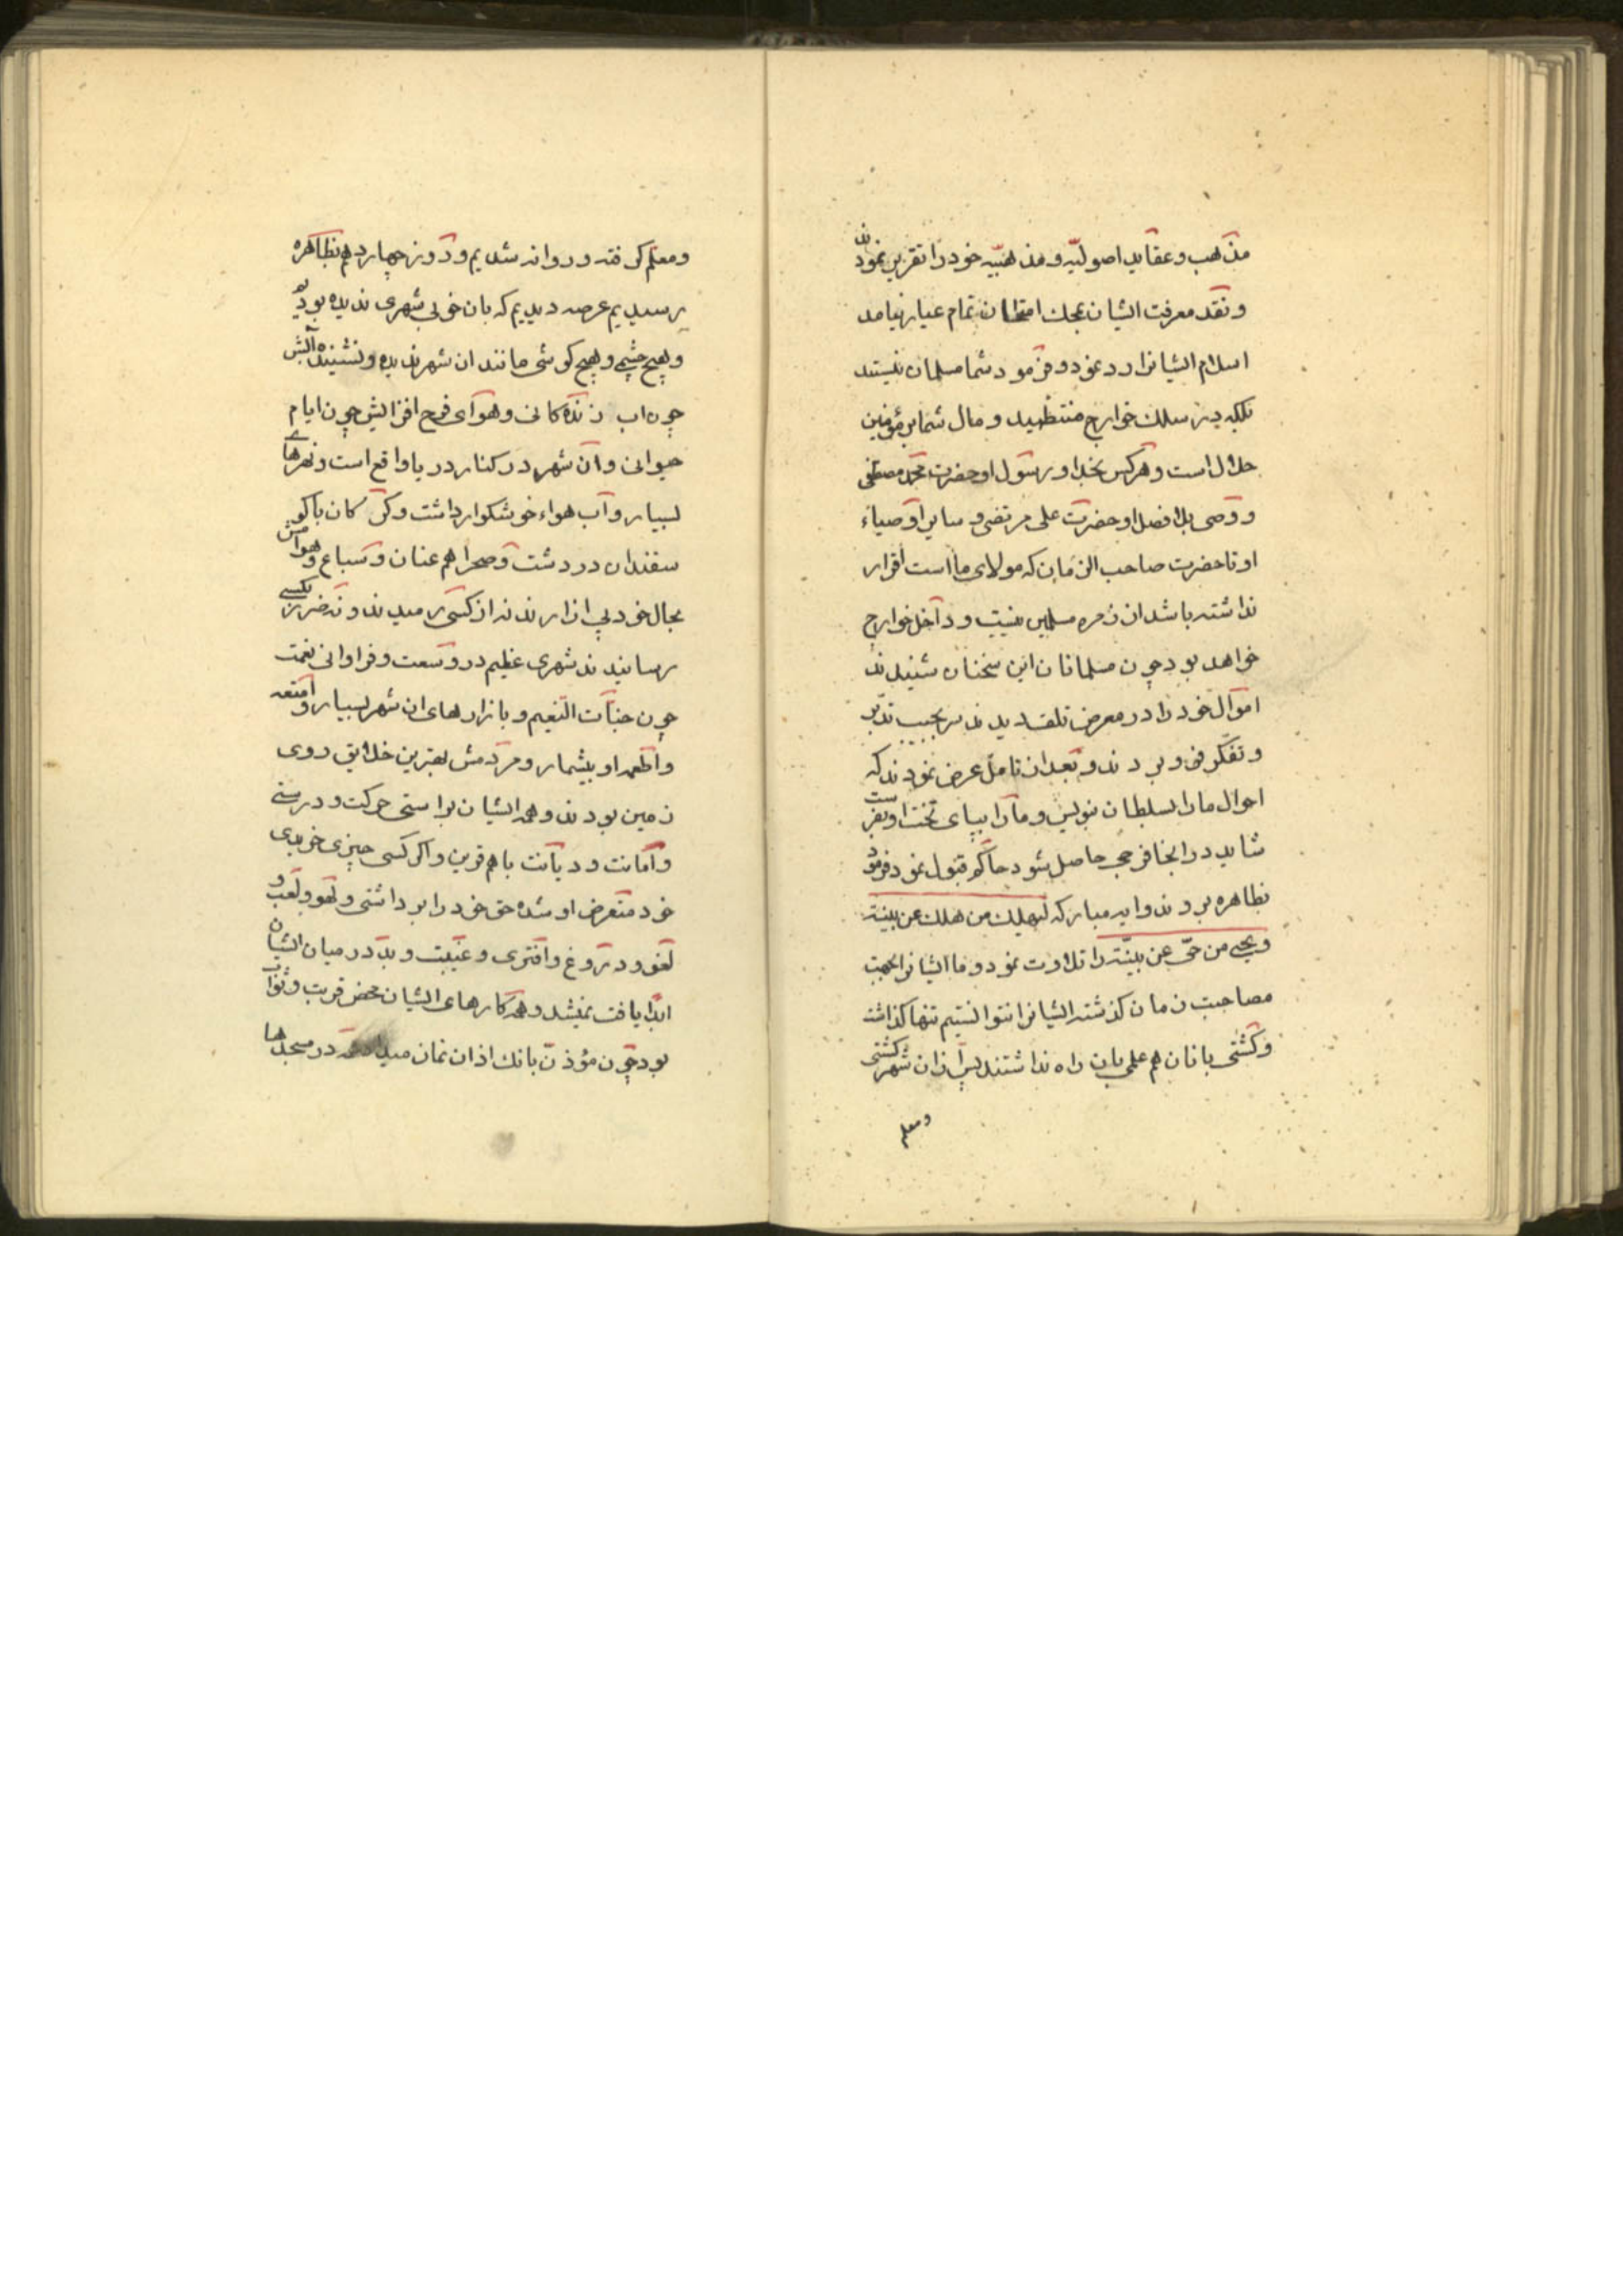 مذهب و عقاید اصولیه و مذهبیه خود را تقریر نمودند
و نقد معرفت ایشان بمحك امتحان تمام عیار نیامد
اسلام ایشانرا رد نمود و فرمود شما مسلمان نیستید
بلکه در سلك خوارج منتظمید و مال شما بر مؤمنین
حلال است و هر کس بخدا و رسول او حضرت محمد مصطفی
و وصی بلا فصل او حضرت علی مرتضی و سایر اوصیاء
او تا حضرت صاحب الزمان که مولای ما است اقرار
نداشته باشد از زمره مسلمین نیست و داخل خوارج
خواهد بود چون مسلمانان این سخنان شنیدند
اموال خود را در معرض تلف دیدند سر بجیب تدبر
و تفکر فرو بردند و بعد از تامل عرض نمودند که
احوال ما را بسلطان بنویس و ما را بپای تخت او بفرست
شاید در انجا فرجی حاصل شود حاکم قبول نمود فرمود
بظاهره بروند و ایه مبارکه لیهلك من هلك عن بینة
و یحیی من حی عن بینة را تلاوت نمود و ما ایشانرا بجهت
مصاحبت زمان گذشته ایشانرا نتوانستیم تنها گذاشت
و کشتی بانان هم علم بان راه نداشتند پس ازان شهر کشتی
و معلم
و معلم گرفته و روانه شدیم و روز چهاردهم بظاهره
رسیدیم عرصه دیدیم که بان خوبی شهری ندیده بودیم
و هیچ چشمی و هیچ گوشی مانند ان شهر ندیده و نشنیده آبش
چون اب زندگانی و هوای فرح افزایش چون ایام
جوانی و آن شهر در کنار دریا واقع است و نهرهای
بسیار و آب هواء خوشکوار داشت و گرگان با گو
سفندان در دشت و صحرا هم عنان و سباع و هوامش
بحال خود بی ازار نه از کسی رمیدند و نه ضرر بکسی
رسانیدند شهری عظیم در وسعت و فراوانی نعمت
چون جنات النعیم و بازارهای ان شهر بسیار و امتعه
و اطعمه او بیشمار و مردمش بهترین خلایق روی
زمین بودند و همه ایشان براستی حرکت و درستی
و امانت و دیانت با هم قرین و اگر کسی چیزی خریدی
خود متعرض او شده حق خود را برداشتی و لهو و لعب و
لغو و دروغ و افتری و غیبت و بد در میان ایشان
ابدا یافت نمیشد و همه کارهای ایشان محض قربت و ثواب
بود چون مؤذن بانك اذان نماز میداد همه در مسجدها